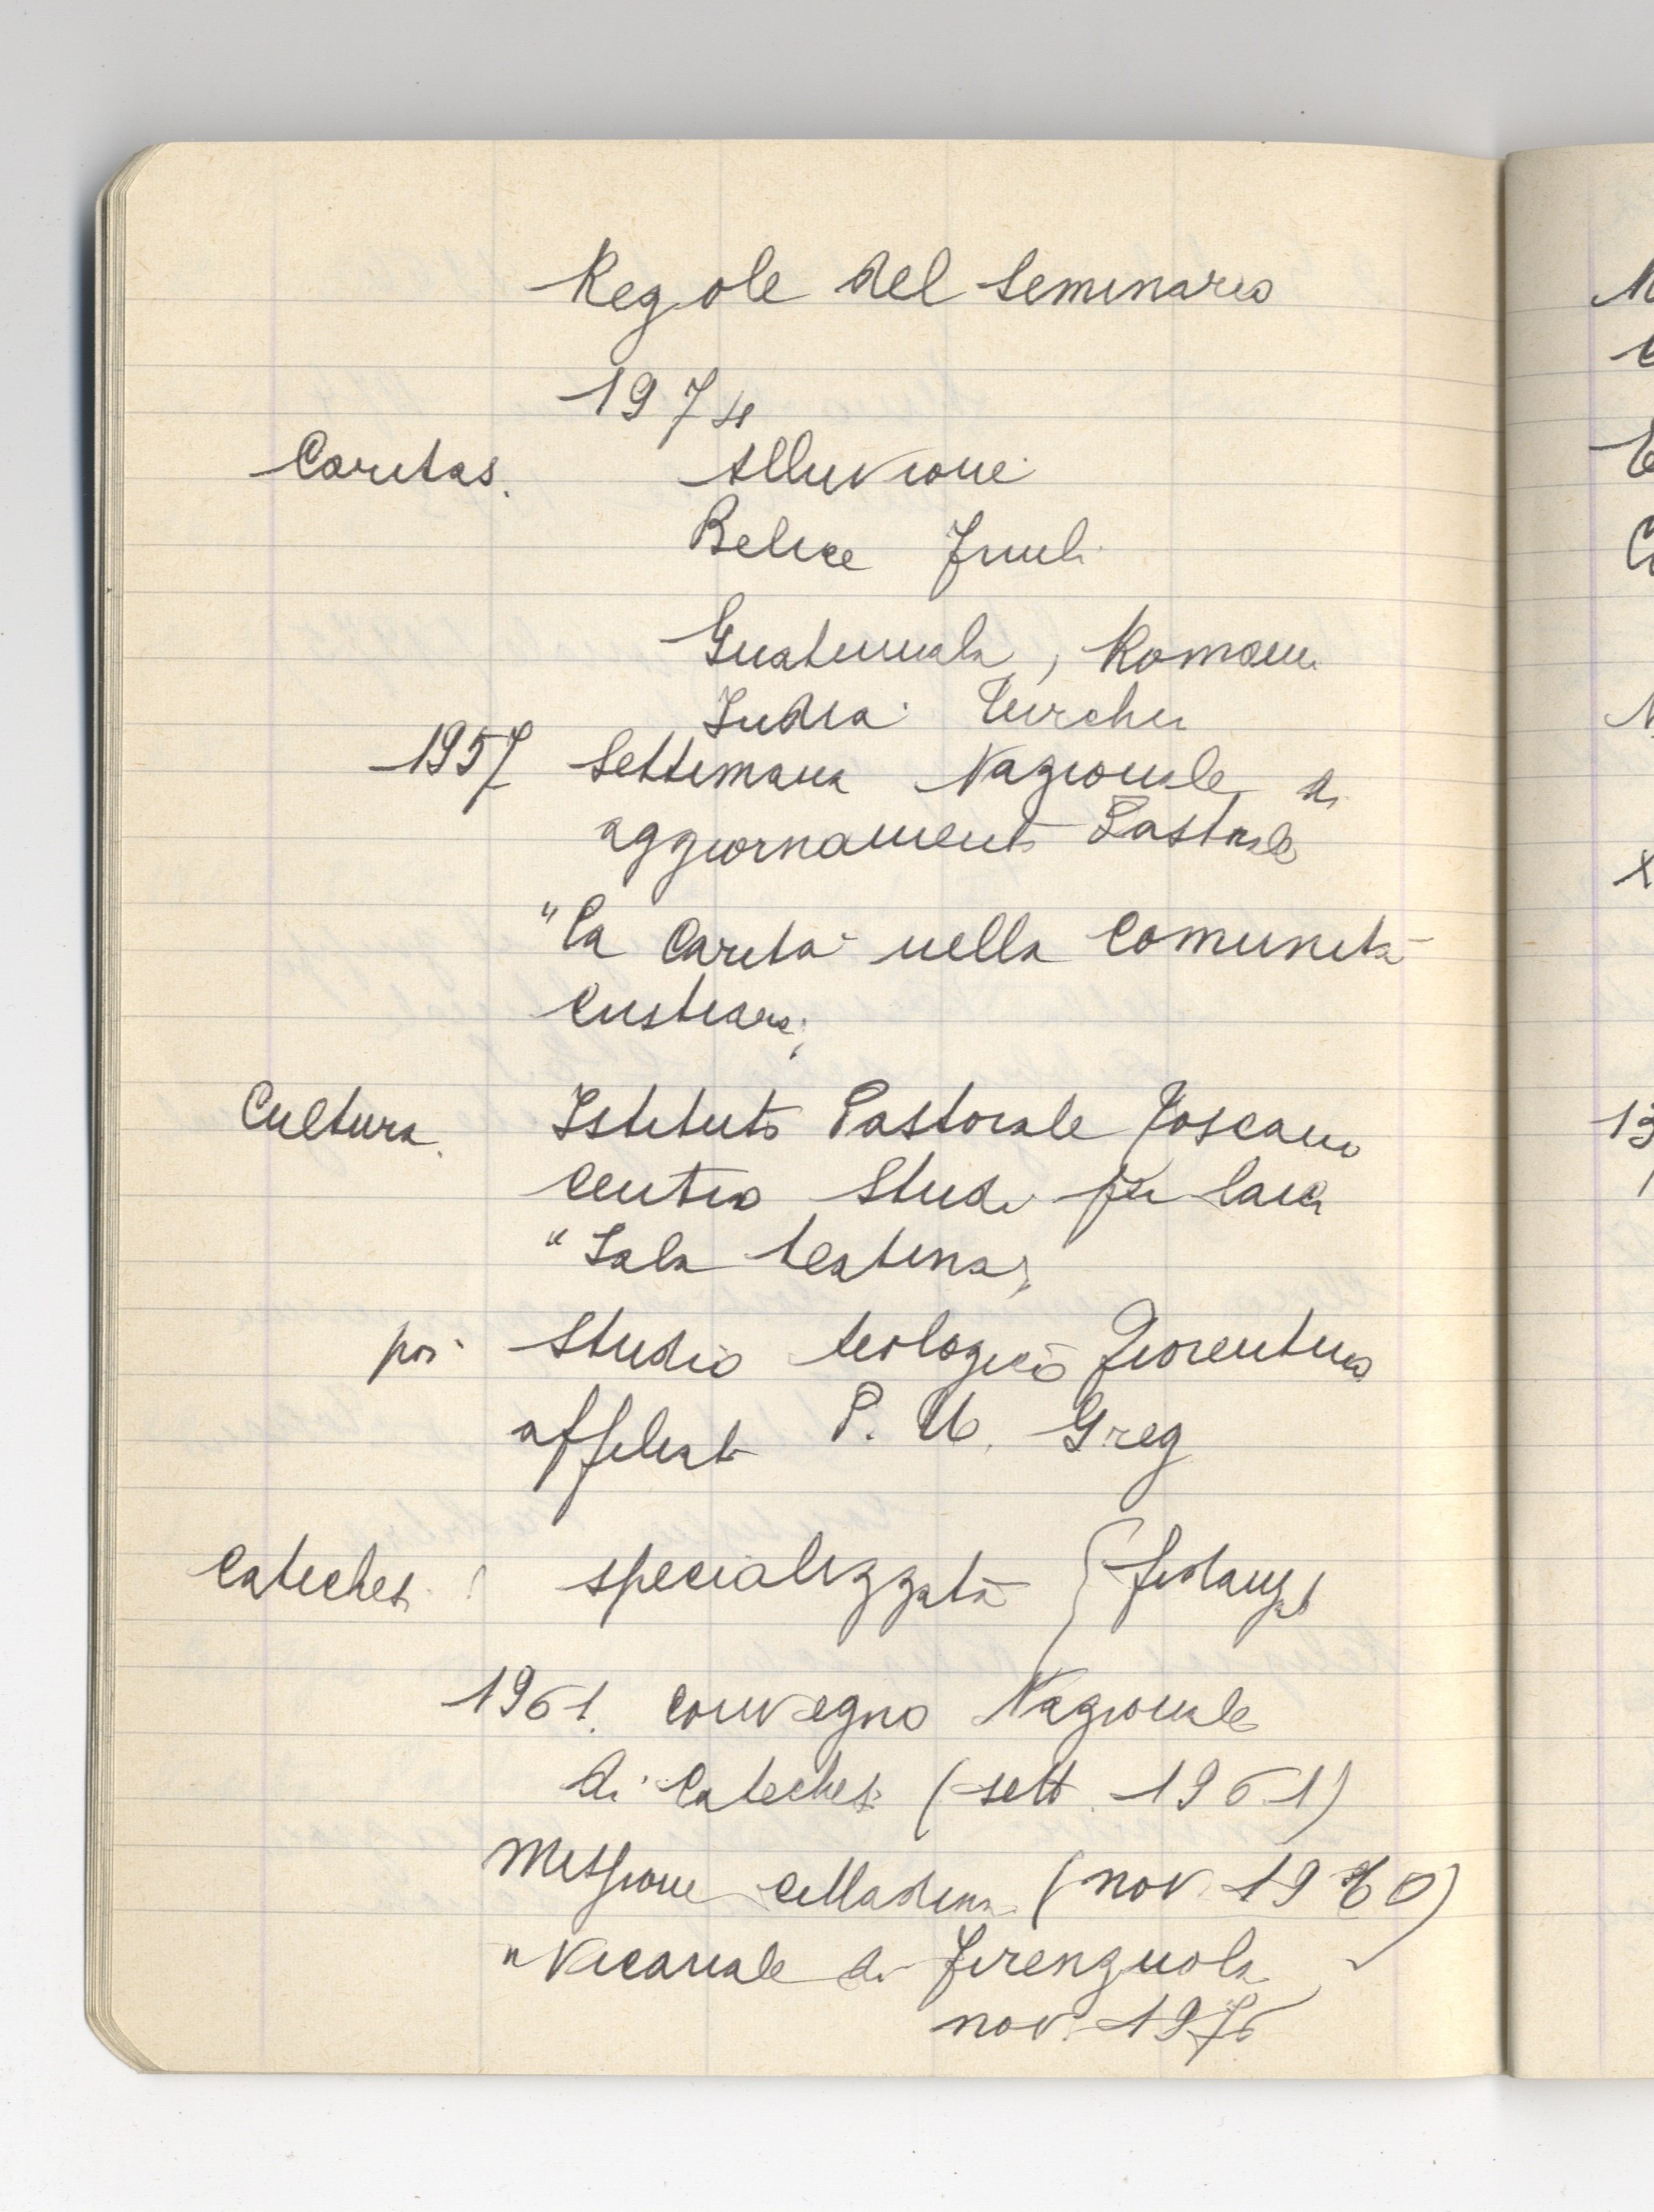 Regole del Seminario
1974
Caritas. Alluvione
Belice Friuli
Guatemala, Romania
India Turchia
1957 Settimana Nazionale di
aggiornamento Pastorale
"La Carità nella Comunità
Cristiana"
Cultura. Istituto Pastorale Toscano
Centro Studi per laici
"Sala teatina"
poi Studio teologico Fiorentino
affiliato P. U. Greg
Catechesi : specializzata { fidanzati
1961. Convegno Nazionale
di Catechesi (sett. 1961)
Missione cittadina (nov. 1960)
" Vicariale di Firenzuola
nov. 1976